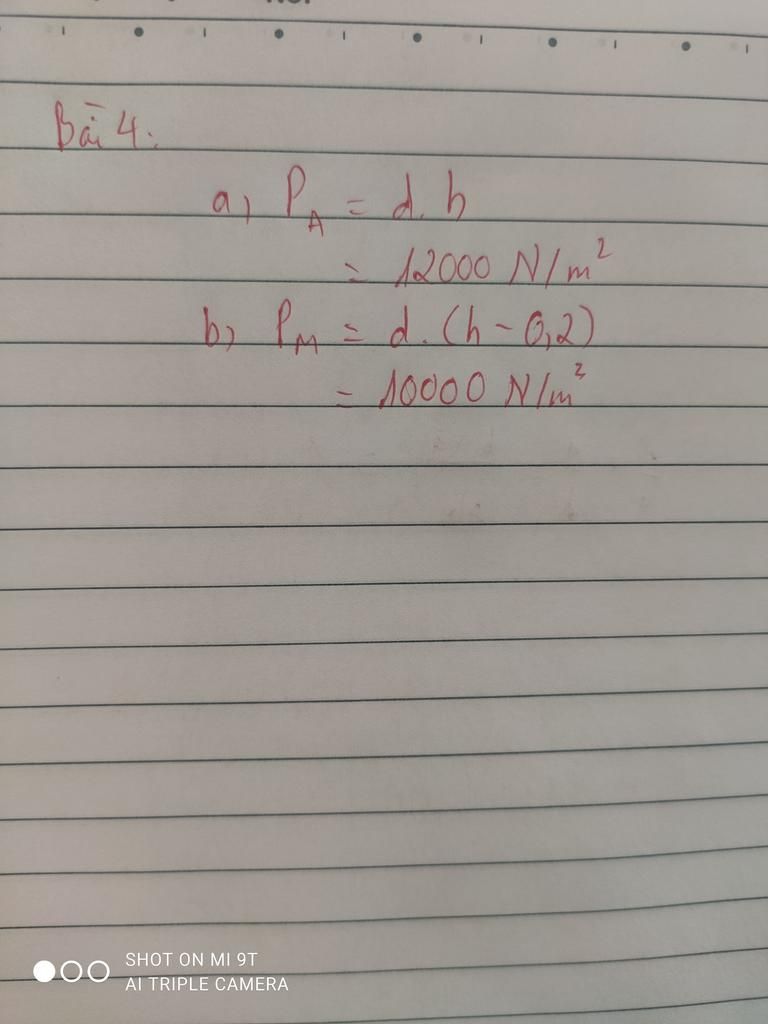 Bài 4:
a, P_A = d.h
= 12000 N/m²
b, P_M = d.(h - 0,2)
= 10000 N/m²
SHOT ON MI 9T
AI TRIPLE CAMERA